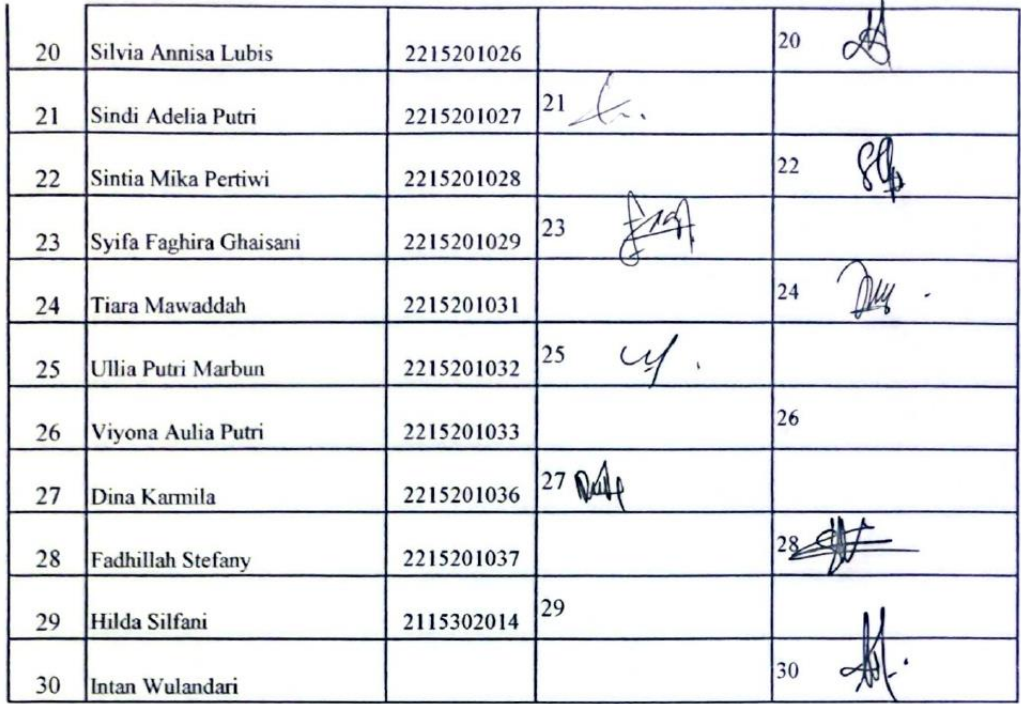 20 Silvia Annisa Lubis 2215201026 20
21 Sindi Adelia Putri 2215201027 21
22 Sintia Mika Pertiwi 2215201028 22
23 Syifa Faghira Ghaisani 2215201029 23
24 Tiara Mawaddah 2215201031 24
25 Ullia Putri Marbun 2215201032 25
26 Viyona Aulia Putri 2215201033 26
27 Dina Karmila 2215201036 27
28 Fadhillah Stefany 2215201037 28
29 Hilda Silfani 2115302014 29
30 Intan Wulandari 30